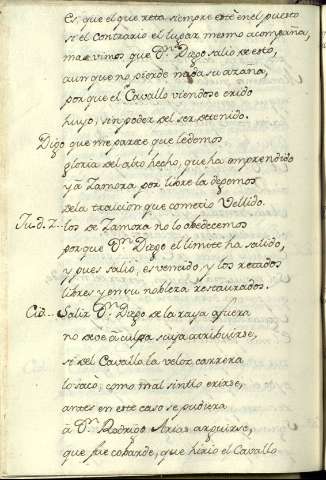 es, que el que reta siempre esté en el puesto
si el contrario el lugar mesmo acompaña,
mas vimos que Dn. Diego salio de esto,
aunque no pierde nada su azaña,
porque el Cavallo viendose erido
huyo, sin poder del ser detenido.
Digo que me parece que le demos
gloria del alto hecho, que ha emprendido
y à Zamora por libre la dejemos
de la traicion que cometio Vellido.
Ju. d. Z. los de Zamora no lo obedecemos
porque Dn. Diego el limite ha salido,
y pues salió, es vencido, y los retados
libres y en su nobleza restaurados.
Cid... Salir Dn. Diego de la raya afuera
no deve à culpa suya atribuirse,
si del Cavallo la veloz carrera
lo sacò, como mal sintio erirse,
antes en este caso se pudiera
à Dn. Rodrigo Arias arguirse,
que fue cobarde, que hirio el Cavallo